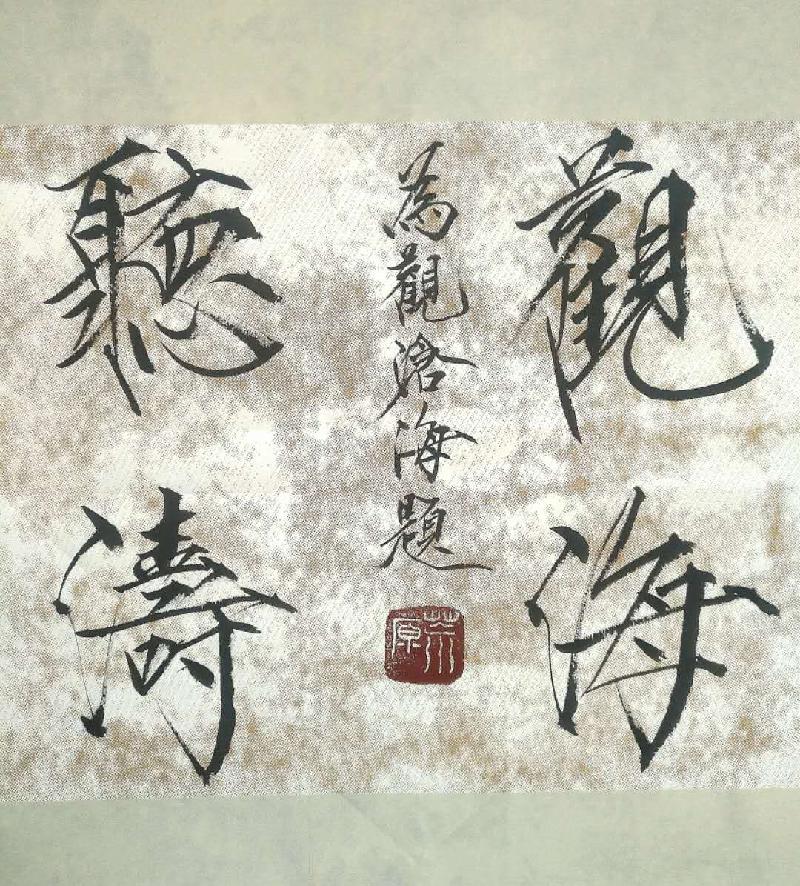 觀海
為觀滄海題
聽濤
荒原